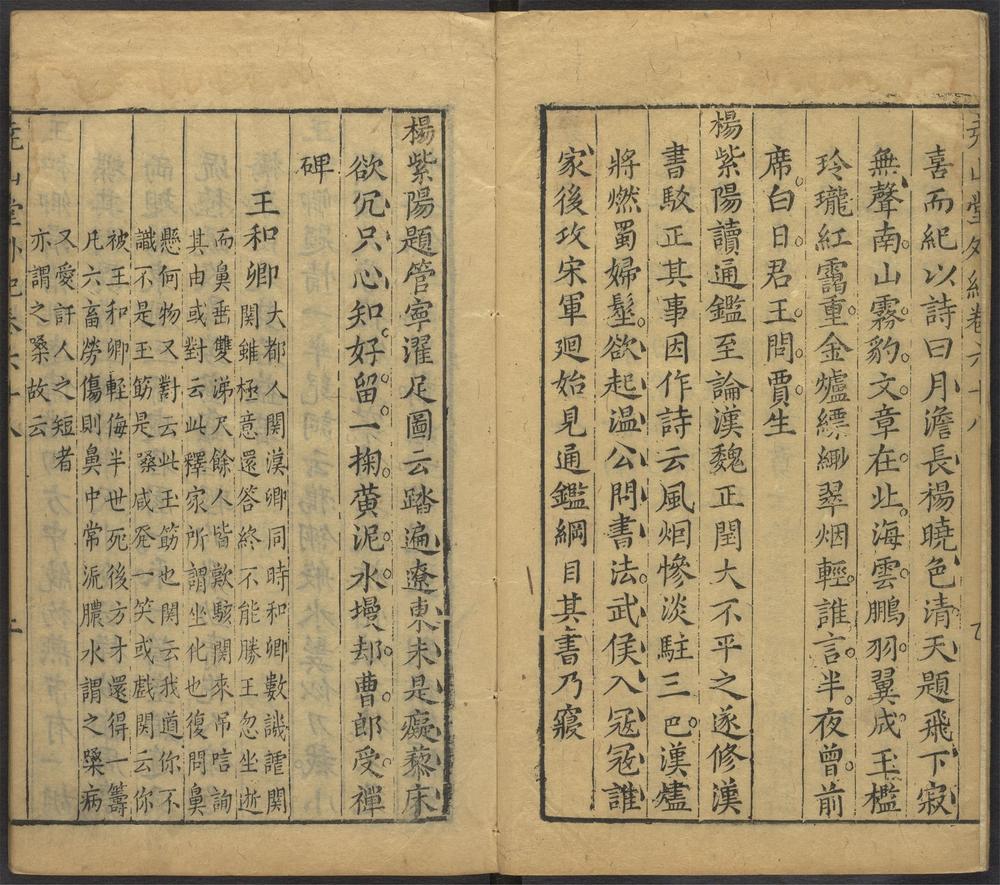 堯山堂外紀卷六十八
喜而紀以詩曰月澹長楊曉色清天題飛下寂
無聲南山霧豹文章在北海雲鵬羽翼成玉檻
玲瓏紅靄重金爐縹緲翠烟輕誰言半夜曾前
席白日君王問賈生
楊紫陽讀通鑑至論漢魏正閏大不平之遂修漢
書駁正其事因作詩云風烟慘淡駐三巴漢燼
將燃蜀婦髽欲起溫公問書法武侯入冦冦誰
家後攻宋軍廻始見通鑑綱目其書乃寢
楊紫陽題管寧濯足圖云踏遍遼東未是癡藜床
欲冗只心知好留一掬黄泥水墁却曹郎受禪
碑
王和卿
大都人関漢卿同時和卿數譏謔関
関雖極意還答終不能勝王忽坐逝
而鼻垂雙涕尺餘人皆歎駭関來吊唁詢
其由或對云此釋家所謂坐化也復問鼻
懸何物又對云此玉筯也関云我道你不
識不是玉筯是嗓咸發一笑或戲関云你
被王和卿輕侮半世死後方才還得一籌
凡六畜勞傷則鼻中常流膿水謂之嗓病
又愛訐人之短者
亦謂之嗓故云
堯山堂外紀卷六十八